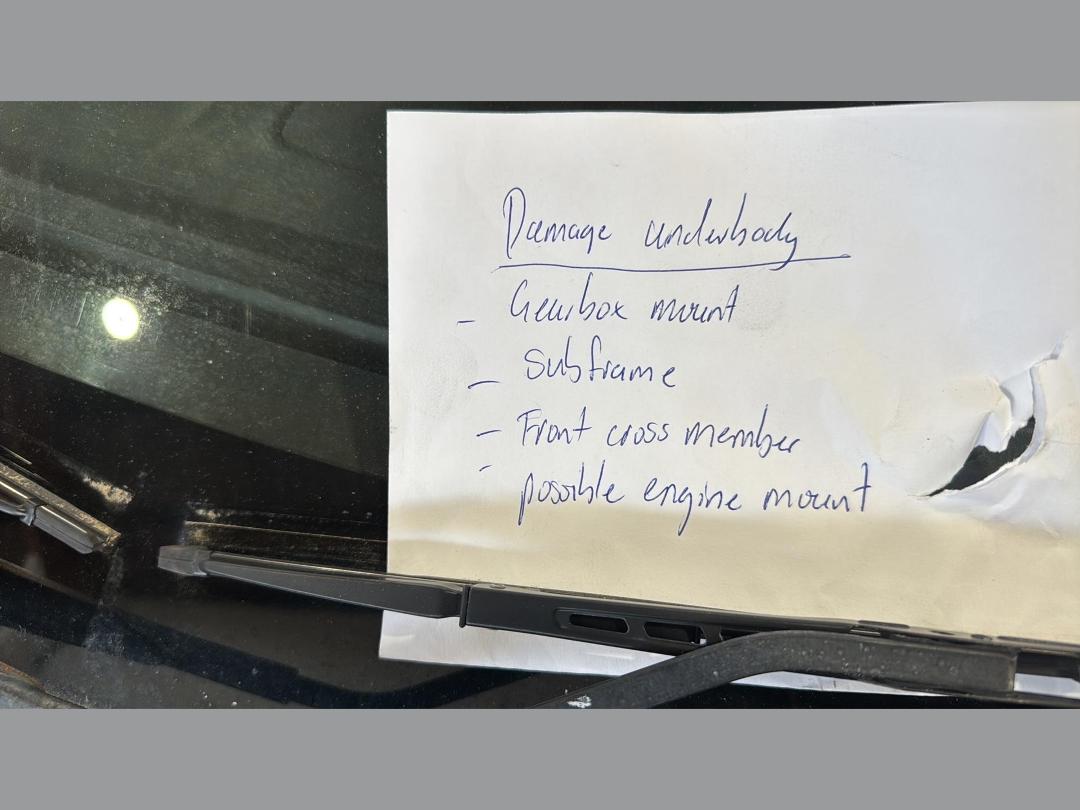 Damage underbody
- Gearbox mount
- Subframe
- Front cross member
- possible engine mount